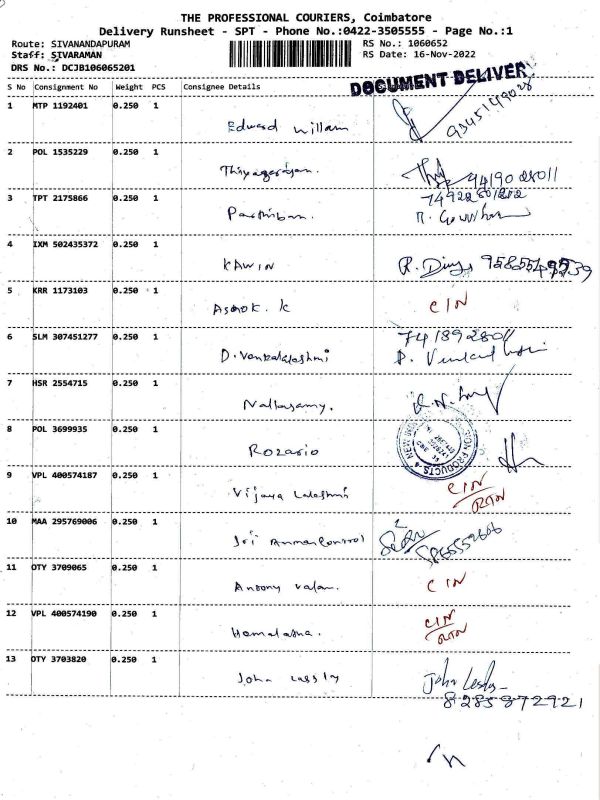 THE PROFESSIONAL COURIERS, Coimbatore
Delivery Runsheet - SPT - Phone No.:0422-3505555 - Page No.:1
Route: SIVANANDAPURAM RS No.: 1060652
Staff: SIVARAMAN RS Date: 16-Nov-2022
DRS No.: DCJB106065201
DOCUMENT DELIVER
S No Consignment No Weight PCS Consignee Details
1 MTP 1192401 0.250 1
Edward Willam
2 POL 1535229 0.250 1
Thiyagarajan.
3 TPT 2175866 0.250 1
Parthiban.
4 IXM 502435372 0.250 1
KAWIN
5 KRR 1173103 0.250 1
ASHOK. K CIN
6 SLM 307451277 0.250 1
D. Venkatalakshmi 7418928011
7 HSR 2554715 0.250 1
Nallasamy.
8 POL 3699935 0.250 1
Rozario
9 VPL 400574187 0.250 1
Vijaya Lakshmi CIN
RTN
10 MAA 295769006 0.250 1
Sri Amman Control
11 OTY 3709065 0.250 1
Antony CIN
12 VPL 400574190 0.250 1
Hemalatha. CIN
RTN
13 OTY 3703820 0.250 1
John Lessly John Lesly
8285872921